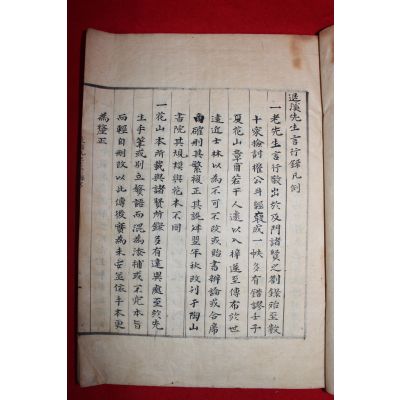 退溪先生言行錄凡例
一老先生言行散出於及門諸賢之劄錄殆至數
十家檢討權公斗經裒成一帙多有錯謬壬子
夏花山章甫若干人遽以入梓遂至傳布於世
遠近士林以為不可不改或貽書辨論或合席
商確刪其繁複正其誤舛翌年秋改刊于陶山
書院其規模與花本不同
一花山本所載與諸賢所錄多有違異處至於先
生手筆或別立繁語而混為添補或不究本旨
而輕自刪改以此傳後實為未安並依手本更
為釐正